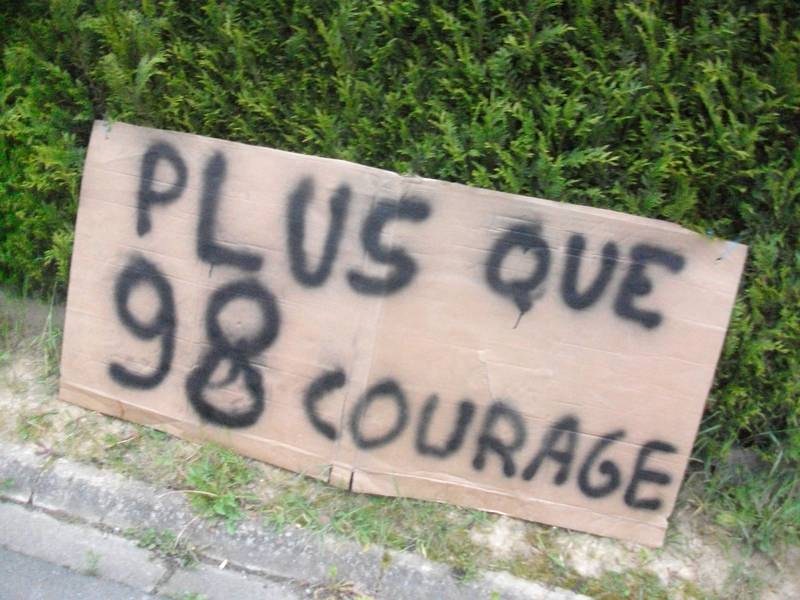 PLUS QUE
98 COURAGE